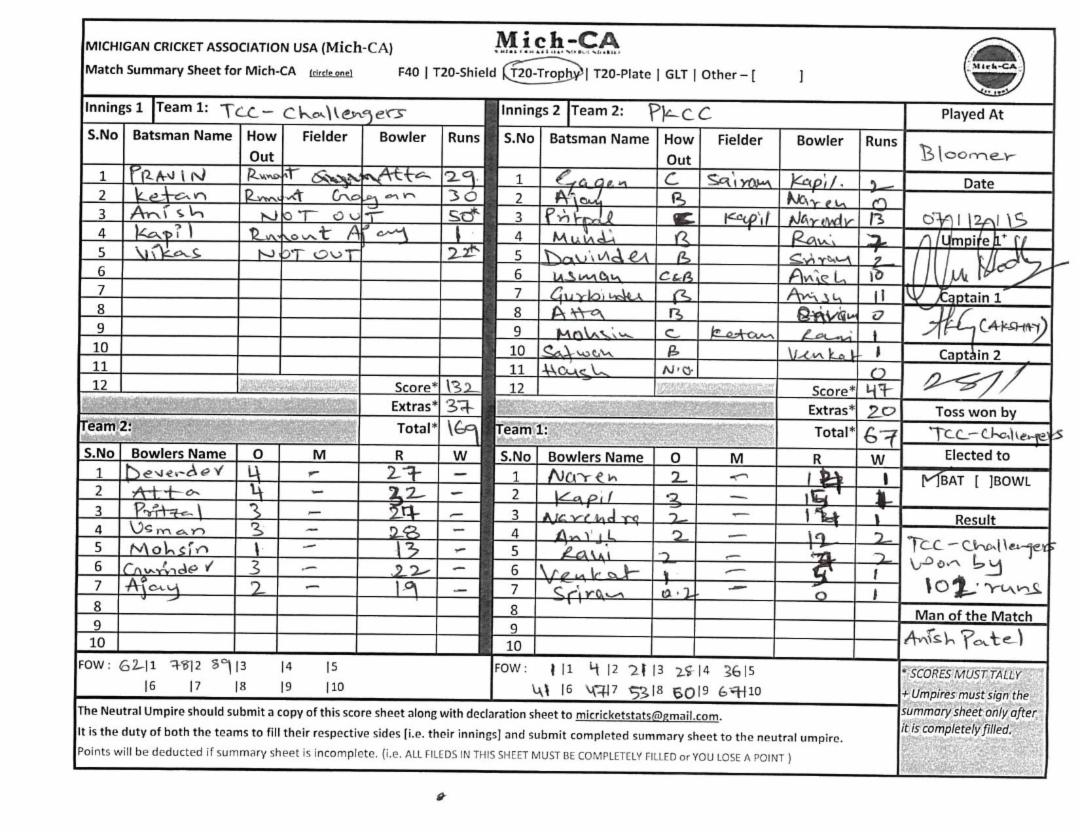 MICHIGAN CRICKET ASSOCIATION USA (Mich-CA)
Mich-CA
Match Summary Sheet for Mich-CA (circle one) F40 | T20-Shield | T20-Trophy | T20-Plate | GLT | Other – [ ]
Mich-CA
Innings 1 Team 1: TCC - Challengers
S.No Batsman Name How Out Fielder Bowler Runs
1 PRAVIN Runout Atta 29
2 Ketan Runout Gagan 30
3 Anish NOT OUT 50*
4 Kapil Runout Ajay 1
5 Vikas NOT OUT 22*
6
7
8
9
10
11
12 Score* 132
Extras* 37
Team 2: Total* 169
S.No Bowlers Name O M R W
1 Deverder 4 – 27 –
2 Atta 4 – 32 –
3 Pritpal 3 – 27 –
4 Usman 3 – 28 –
5 Mohsin 1 – 13 –
6 Gurinder 3 – 22 –
7 Ajay 2 – 19 –
8
9
10
FOW : 62|1 78|2 89|3 |4 |5
|6 |7 |8 |9 |10
Innings 2 Team 2: PKCC
S.No Batsman Name How Out Fielder Bowler Runs
1 Gagen C Sairam Kapil. 2
2 Ajay B Naren 0
3 Pritpal C Kapil Narendr 13
4 Mundi B Ravi 7
5 Davinder B Sriram 2
6 Usman C&B Anish 10
7 Gurbinder B Anish 11
8 Atta B 0
9 Mohsin C Ketan Ravi 1
10 Satwen B Venkat 1
11 Harsh N.O 0
12 Score* 47
Extras* 20
Team 1: Total* 67
S.No Bowlers Name O M R W
1 Naren 2 – 1
2 Kapil 3 – 15 1
3 Narendra 2 – 1
4 Anish 2 – 12 2
5 Ravi 2 – 2
6 Venkat 1 – 5 1
7 Sriram 0.2 – 0 1
8
9
10
FOW : 1|1 4|2 21|3 28|4 36|5
41|6 47|7 53|8 60|9 67|10
Played At
Bloomer
Date
Umpire 1+
Captain 1
(AKSHAY)
Captain 2
Toss won by
TCC-Challengers
Elected to
[ ]BAT [ ]BOWL
Result
TCC-Challengers
won by
102 runs
Man of the Match
Anish Patel
* SCORES MUST TALLY
+ Umpires must sign the
summary sheet only after
it is completely filled.
The Neutral Umpire should submit a copy of this score sheet along with declaration sheet to micricketstats@gmail.com.
It is the duty of both the teams to fill their respective sides [i.e. their innings] and submit completed summary sheet to the neutral umpire.
Points will be deducted if summary sheet is incomplete. (i.e. ALL FILEDS IN THIS SHEET MUST BE COMPLETELY FILLED or YOU LOSE A POINT )